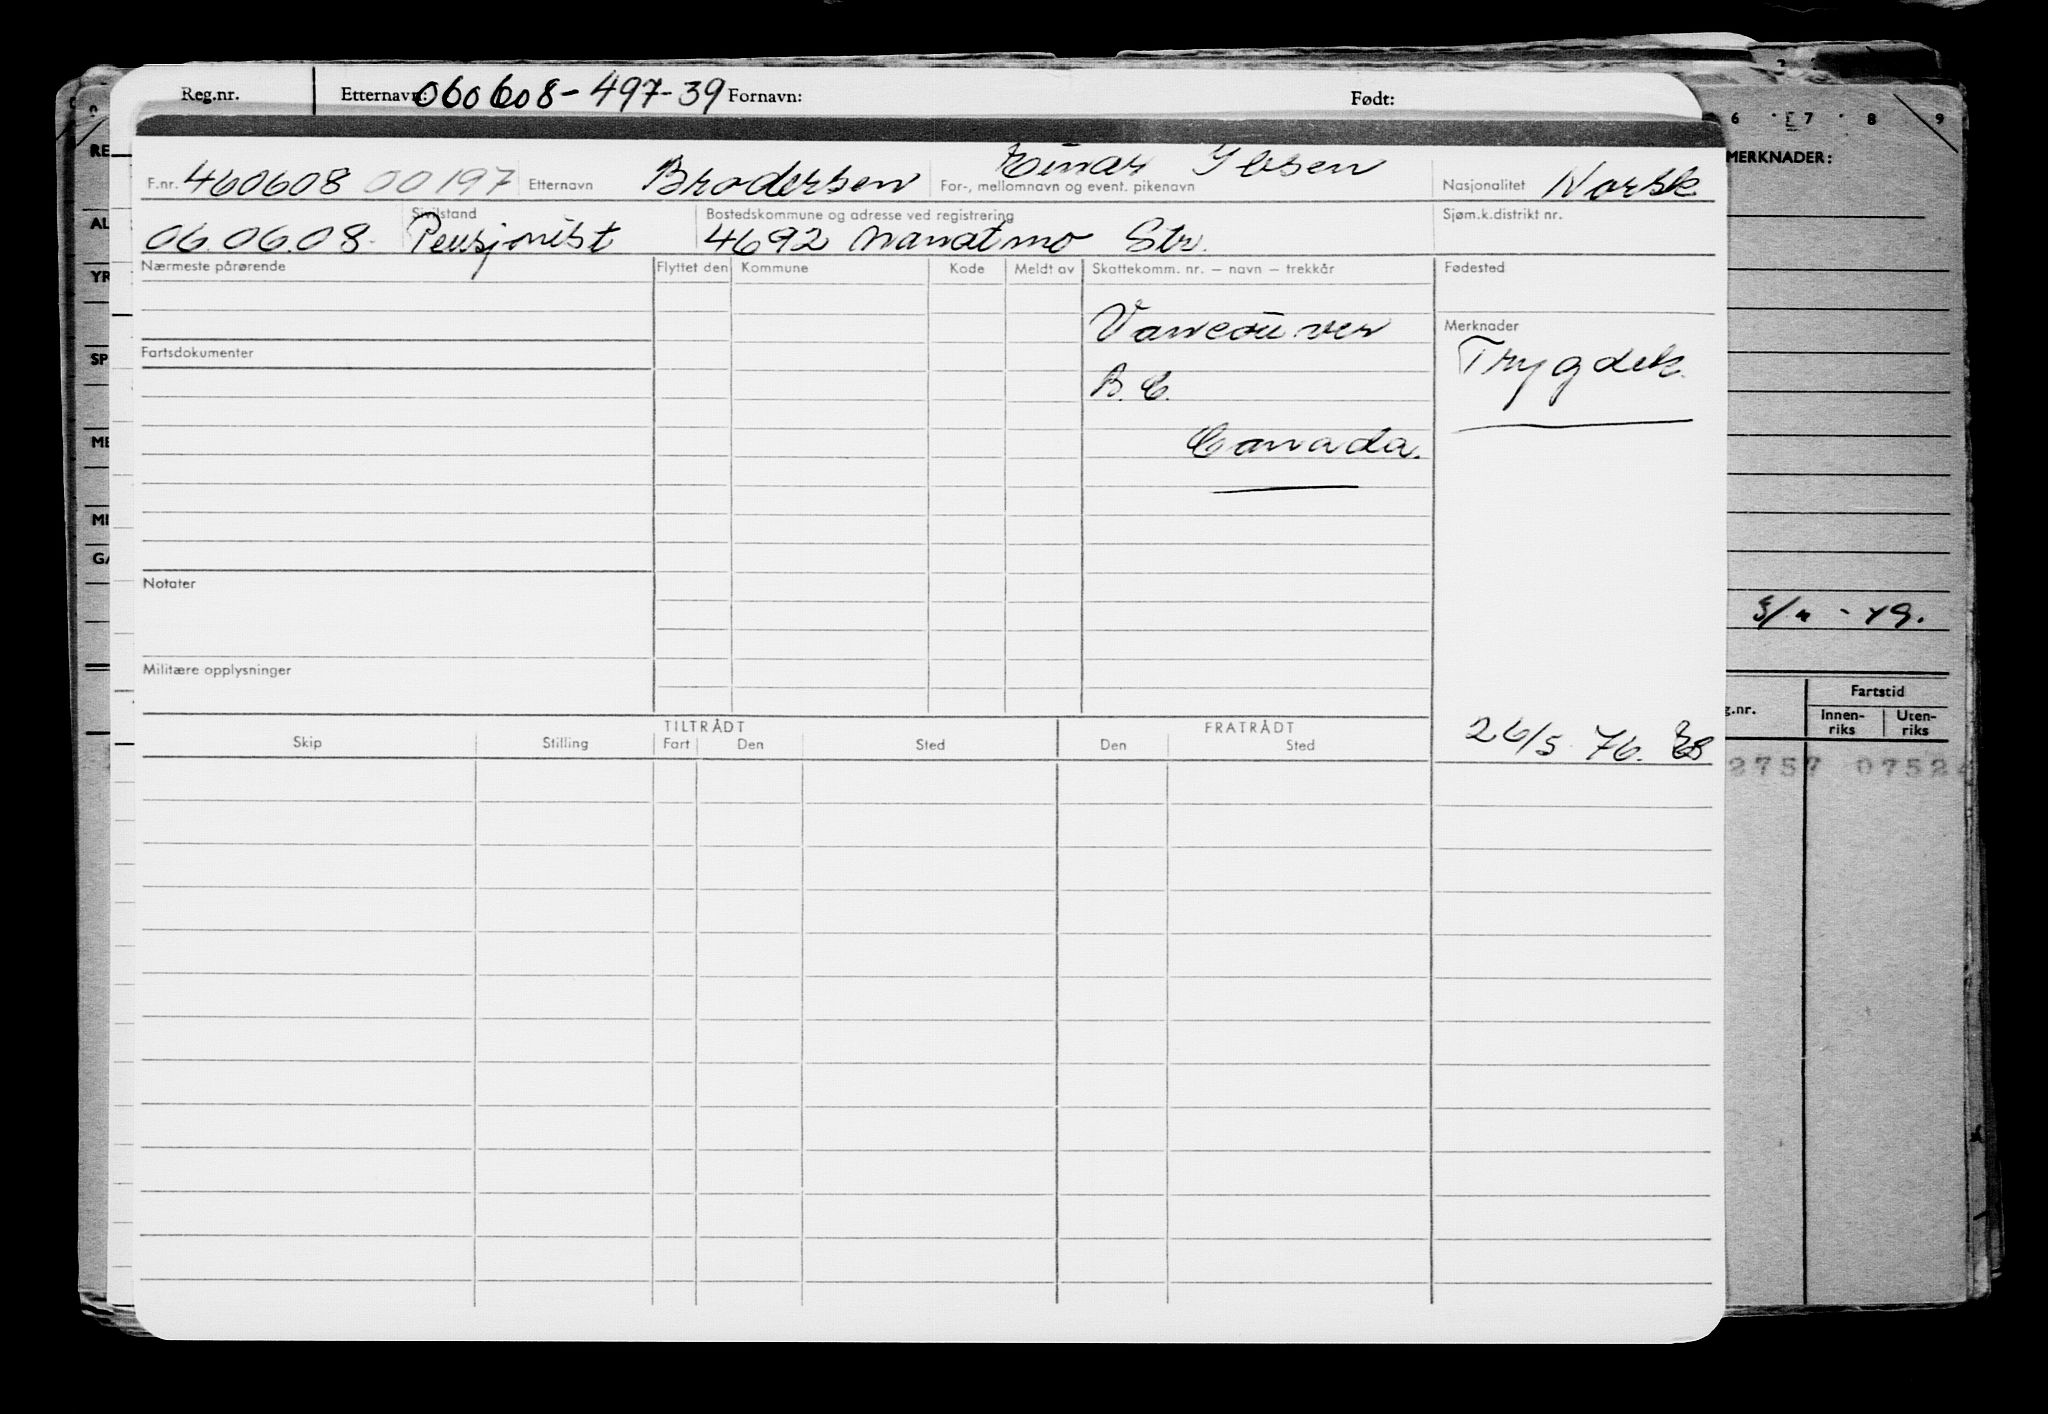 Reg.nr. Etternavn: 060608-497-39 Fornavn: Født:
F.nr. 460608 00197 Etternavn Brodersen For-, mellomnavn og event. pikenavn Einar Ibsen Nasjonalitet Norsk
06.06.08. Sivilstand Pensjonist Bostedskommune og adresse ved registrering 4692 Nanaimo Str. Sjøm.k.distrikt nr.
Nærmeste pårørende Flyttet den Kommune Kode Meldt av Skattekomm. nr. – navn – trekkår Fødested
Vancouver
Merknader
Fartsdokumenter
Trygdek.
B.C.
Canada.
Notater
Militære opplysninger
TILTRÅDT FRATRÅDT
Skip Stilling Fart Den Sted Den Sted
26/5 76.
6 7 8 9
MERKNADER:
RE
AL
YR
SP
ME
MI
GA
- 49.
Fartstid
g.nr. Innen-riks Uten-riks
2757 07524